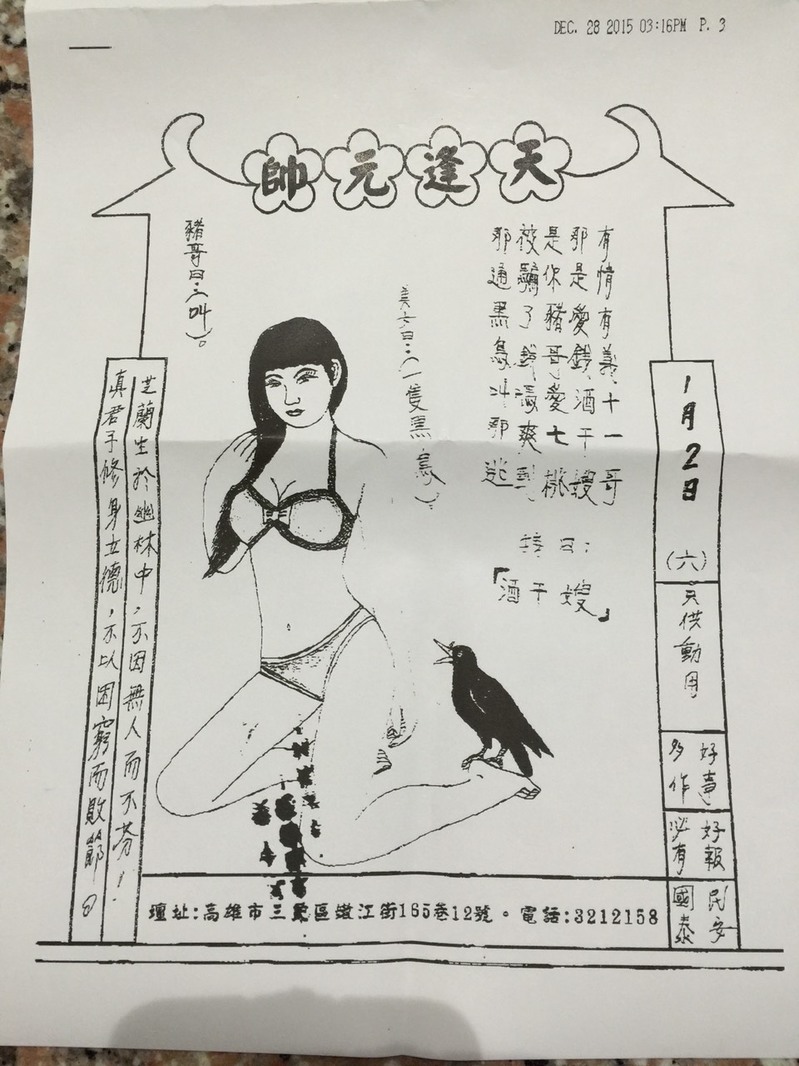 DEC. 28 2015 03:16PM P. 3
天逢元帥
1月2日
(六)
只供動用
好事多作
好報必有
民安國泰
有情有義十一哥
那是愛錢酒干嫂
是你豬哥愛七桃
被騙了錢
那通黑鳥叫那逃
「酒干嫂」
(一隻黑鳥)。
豬哥曰:三叫)。
芝蘭生於幽林中,不因無人而不芬!
真君子修身立德,不以困窮而敗節。
壇址:高雄市三民區嫩江街165巷12號。電話:3212158